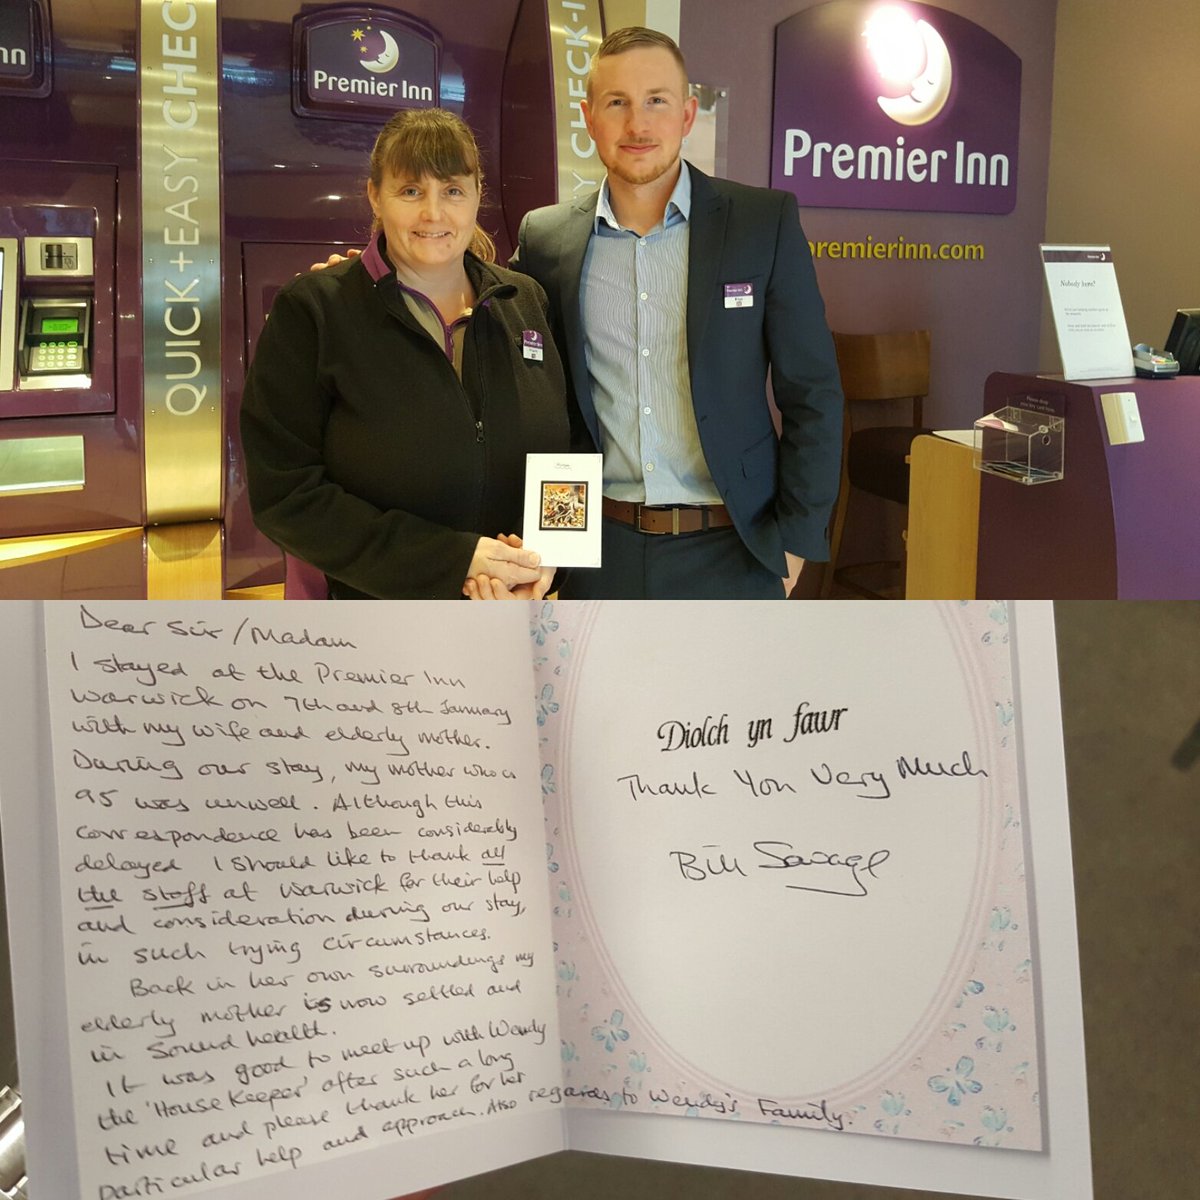 nn
QUICK+EASY CHECK
Premier Inn
Y CHECK-I
Premier Inn
premierinn.com
Premier Inn
Premier Inn
Nobody here?
Dear Sir/Madam
I stayed at the Premier Inn
Warwick on 7th and 8th January
with my wife and elderly mother.
During our stay, my mother who is
95 was unwell. Although this
correspondence has been considerably
delayed I should like to thank all
the staff at Warwick for their help
and consideration during our stay,
in such trying circumstances.
Back in her own surroundings my
elderly mother is now settled and
in sound health.
It was good to meet up with Wendy
the 'House Keeper' after such a long
time and please thank her for her
particular help and approach. Also regards to Wendy's Family.
Diolch yn fawr
Thank You Very Much
Bill Savage